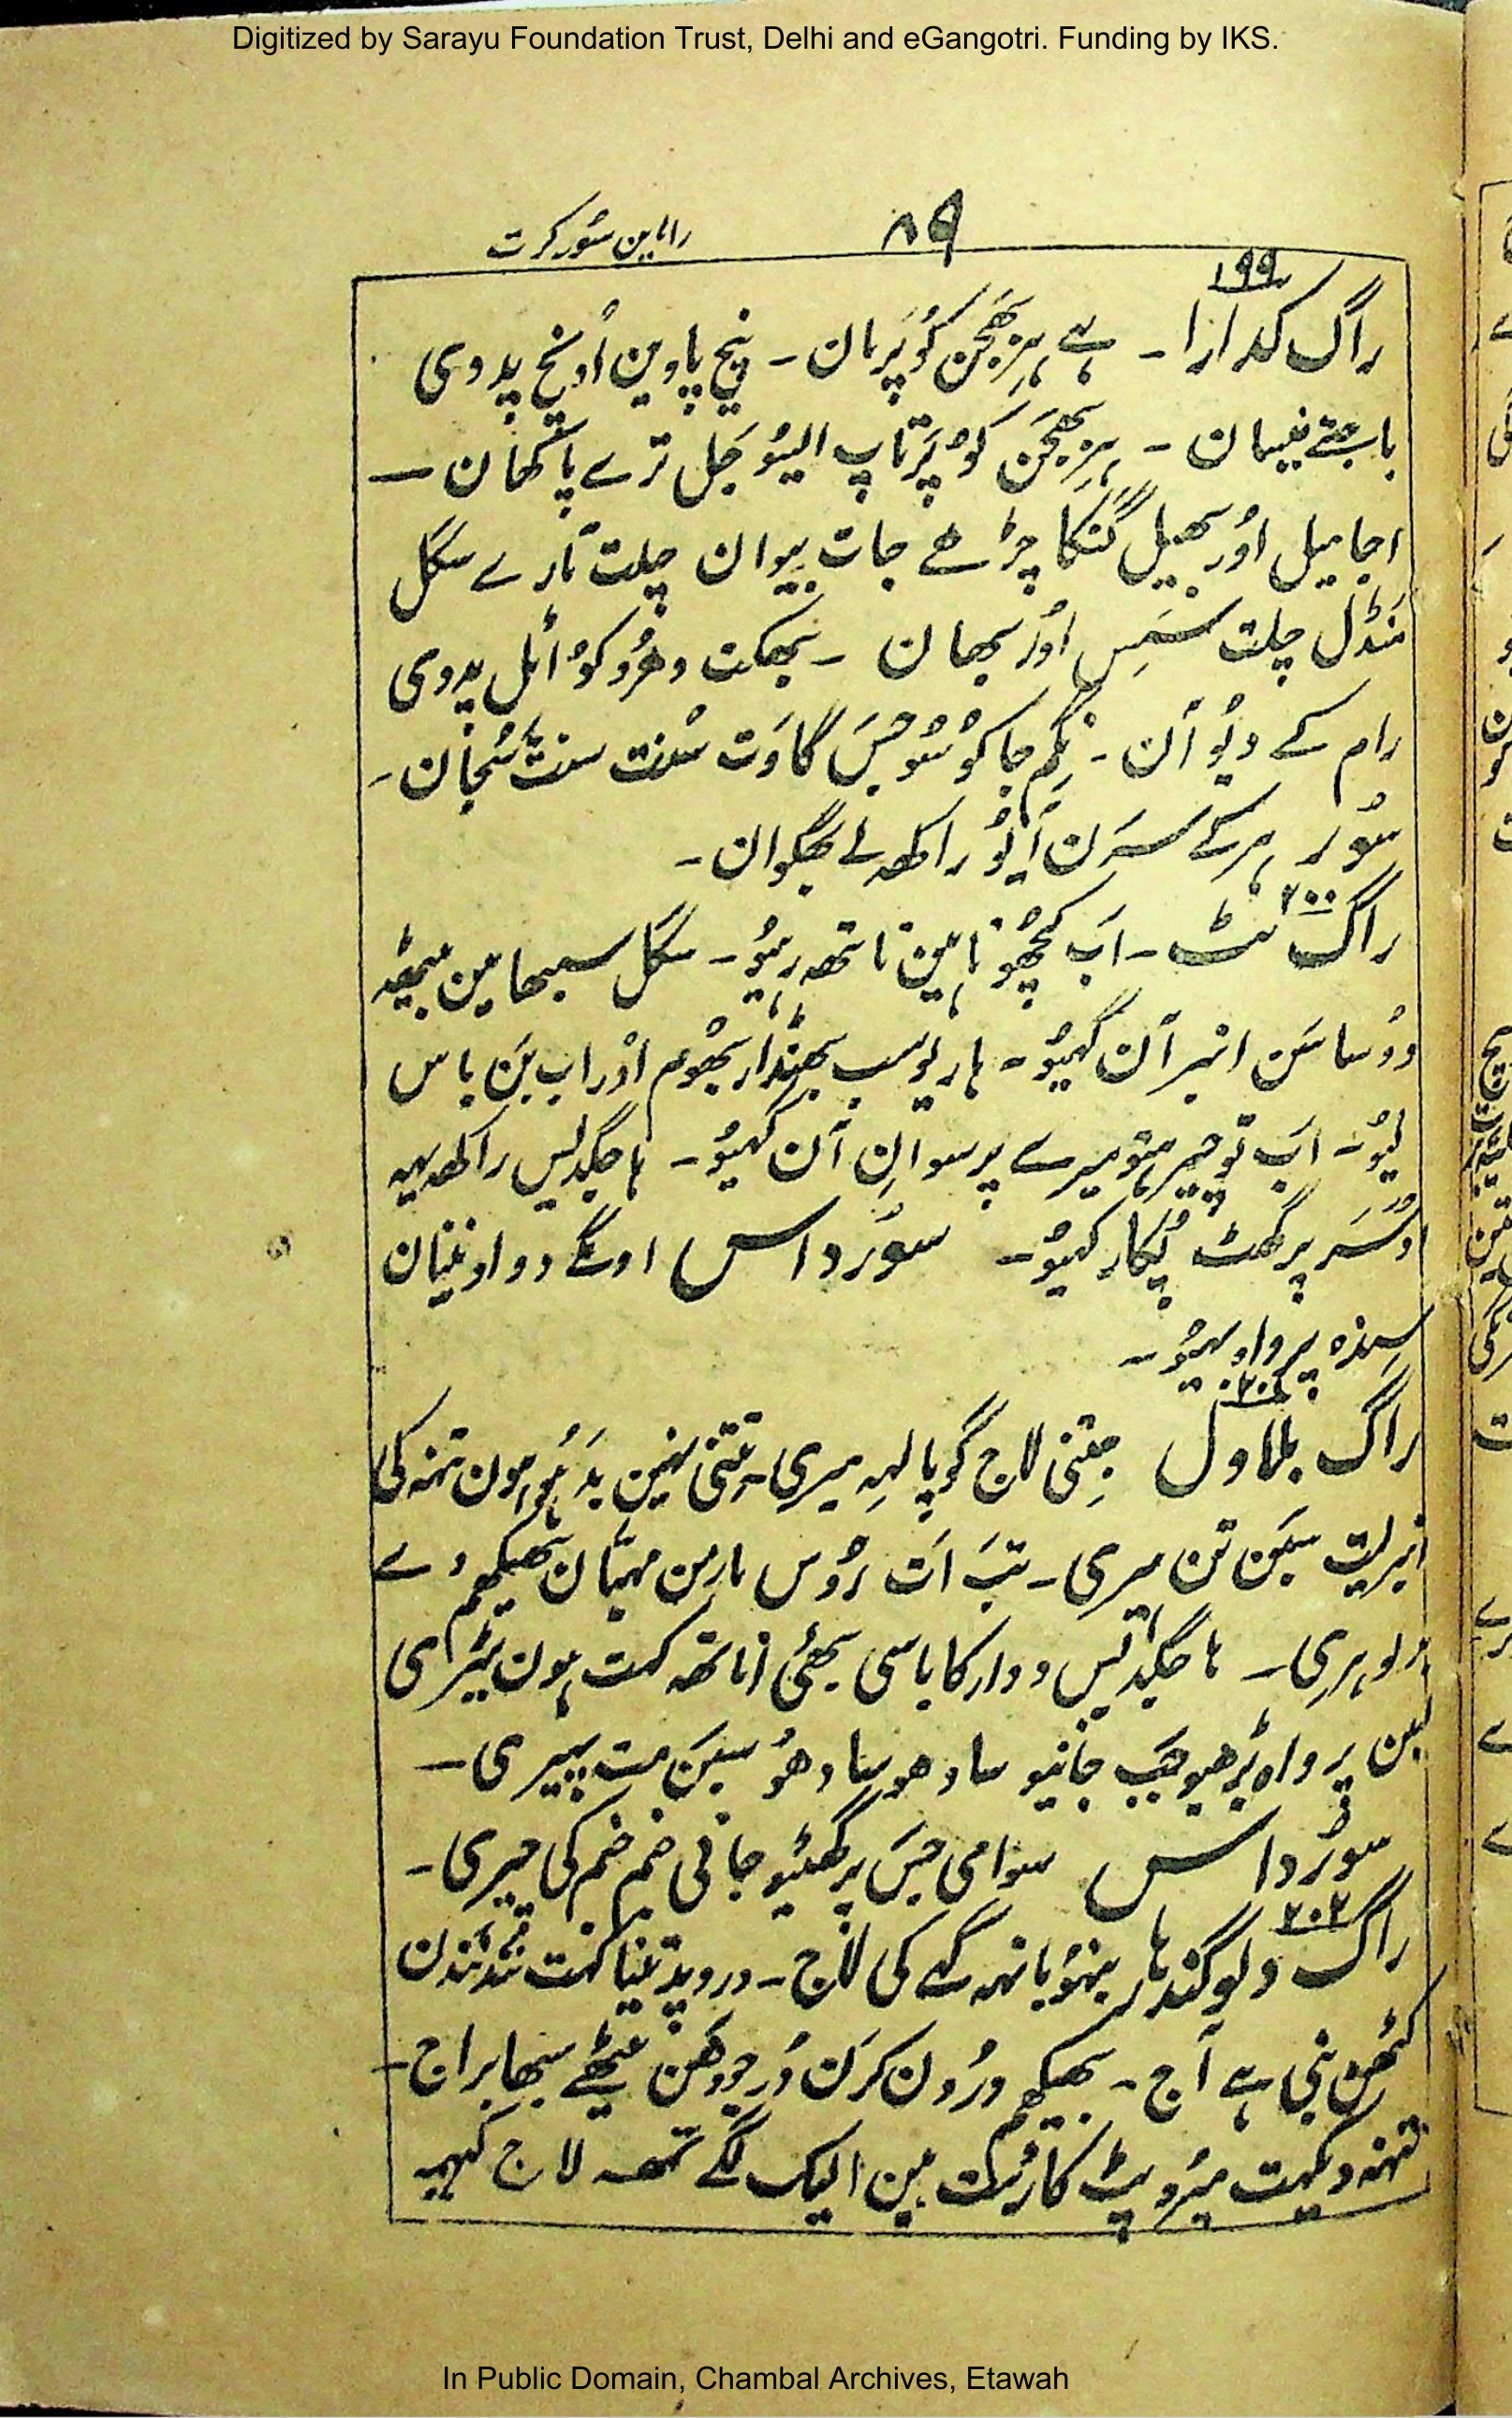 Digitized by Sarayu Foundation Trust, Delhi and eGangotri. Funding by IKS.
راماین سور کرت
۸۹
۱۹۹
راگ کدارا ۔ ہے ہرِبھجن کوُ پَرمان ۔ نیچ پاوین اُونچ پدوی
باجتے نیسان ۔ ہرِبھجَن کوُ پَرَتاپ ایسُو جَل ترے پاکھان ۔
اجامیل اوُر بھیل گنکا چڑھے جات بیوان چلت تارے سکل
مَنڈل چلت سَسِ اوُر بھان ۔ بھکت دھُرُو کوُ اٹل پدوی
رام کے دیُوآن ۔ نِگم جاکوُ سُوجَس گاوَت سُنت سنت سُجان ۔
سوُر ہر کے سَرَن آیوُ راکھ لے بھگوان ۔
۲۰۰
راگ نٹ ۔ اَب کچھُو ناہین ناتھ رہیُو ۔ سکَل سبھا مین بیٹھ
دوُساسَن انبر آن گہیُو ۔ ہاریو سب بھنڈار بھُوم اوُر اب بَن باس
لیُو ۔ اَب تو چیر ہتو میرے پر سوانِ آن گہیُو ۔ ہا جگدیس راکھ یہہ
اوُسَر پرگھٹ پُکار کہیُو ۔ سوُرداس اوگے دواو نینان
سِندہ پرواہ بہیُو ۔
راگ بلاول جِتنی لاج گوپالہِ میری ۔ تِتنی نہین بدَھوُ ہون تمنہ کی
انبر لیت سبَن تن ہیری ۔ تبَ اَت رُوس مارمن مہیَان بھیکھم دے
ہا جگدیس دوارکا باسی بھئی اناتھ کہت ہون ٹیری
بسن پرواہ بڑھیو جَب جانیو سادھو سادھوُ سبَن مت پھیری ۔
سوُرداس سوامی جَس پرگھٹیو جانی جنم جنم کی چیری ۔
۲۰۲
راگ دیوگندہار نبہُو بانہہ گہے کی لاج ۔ دروپد تنیا کہت نَندنَندن
کٹھِن بنی ہے آج ۔ بھیکھم دروُن کرَن دُرجودھَن بیٹھے سبھا براج ۔
تمنہ دیکہت میرُو پٹ کاڑہت ہین الیک لگے تمہہ لاج کہیہ
In Public Domain, Chambal Archives, Etawah